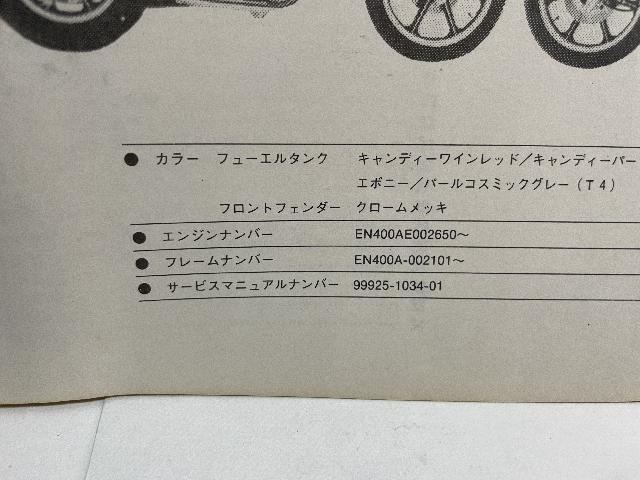 ● カラー フューエルタンク キャンディーワインレッド／キャンディーパー
エボニー／パールコスミックグレー（T4）
フロントフェンダー クロームメッキ
● エンジンナンバー EN400AE002650～
● フレームナンバー EN400A-002101～
● サービスマニュアルナンバー 99925-1034-01